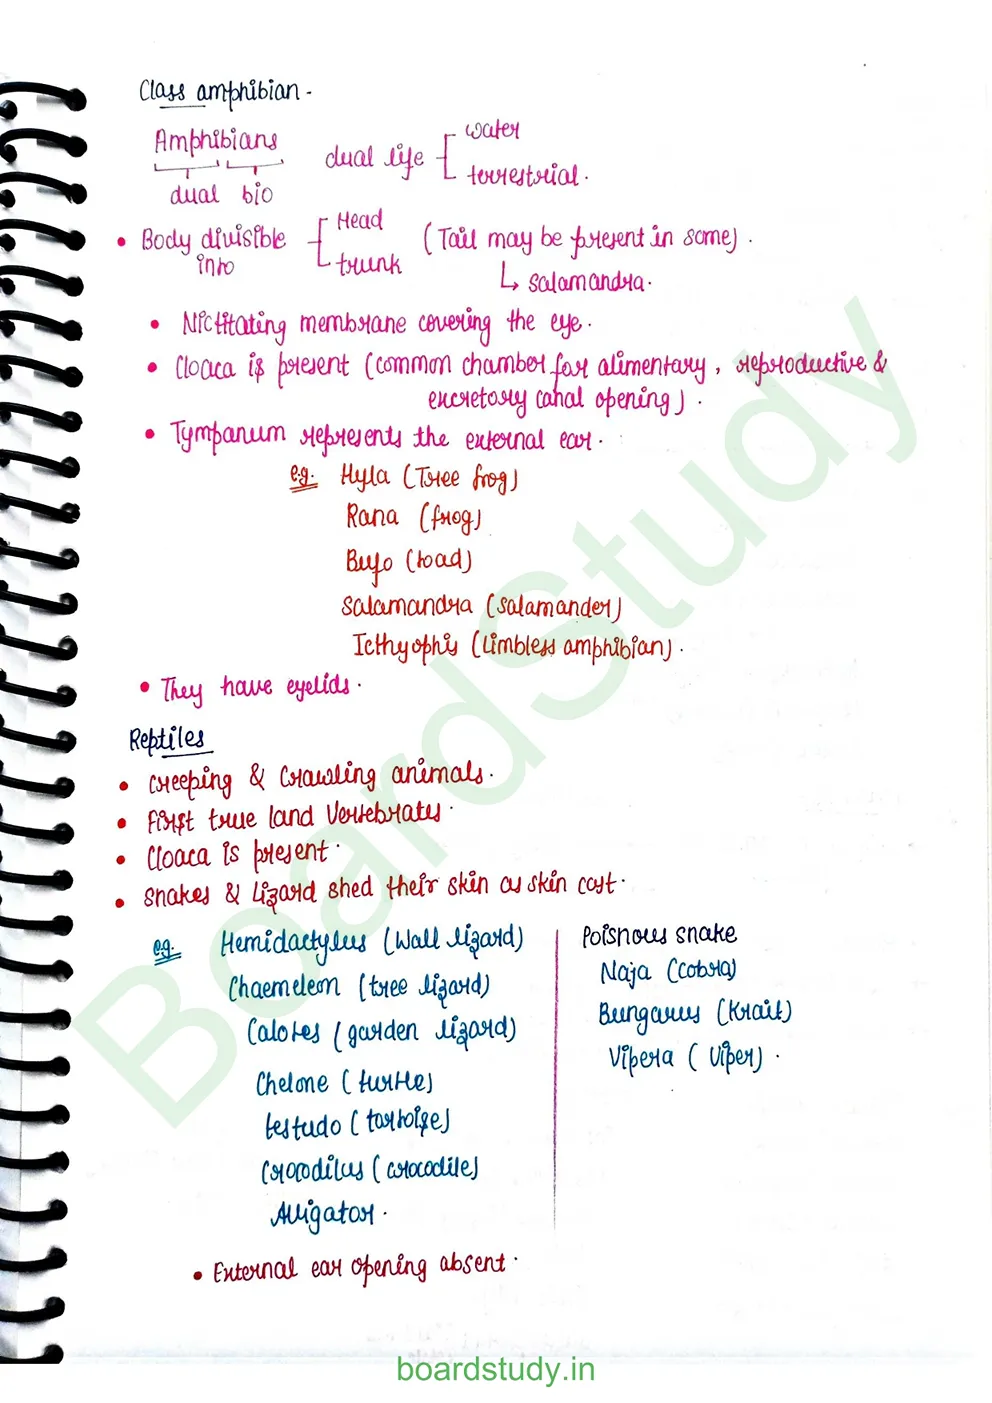 Class amphibian.
Amphibians
dual bio
dual life
water
terrestrial.
• Body divisible into
Head
trunk
(Tail may be present in some).
↳ Salamandra.
• Nictitating membrane covering the eye.
• Cloaca is present (common chamber for alimentary, reproductive &
excretory canal opening).
• Tympanum represents the external ear.
e.g. Hyla (Tree frog)
Rana (frog)
Bufo (toad)
Salamandra (Salamander)
Icthyophis (Limbless amphibian).
• They have eyelids.
Reptiles
• Creeping & Crawling animals.
• First true land Vertebrates.
• Cloaca is present.
• Snakes & Lizard shed their skin as skin cast.
e.g. Hemidactylus (Wall lizard)
Chaemeleon (tree lizard)
Calotes (garden lizard)
Chelone (turtle)
testudo (tortoise)
Crocodilus (crocodile)
Alligator.
Poisnous snake
Naja (cobra)
Bungarus (Krait)
Vipera (Viper).
• External ear opening absent.
BoardStudy
boardstudy.in